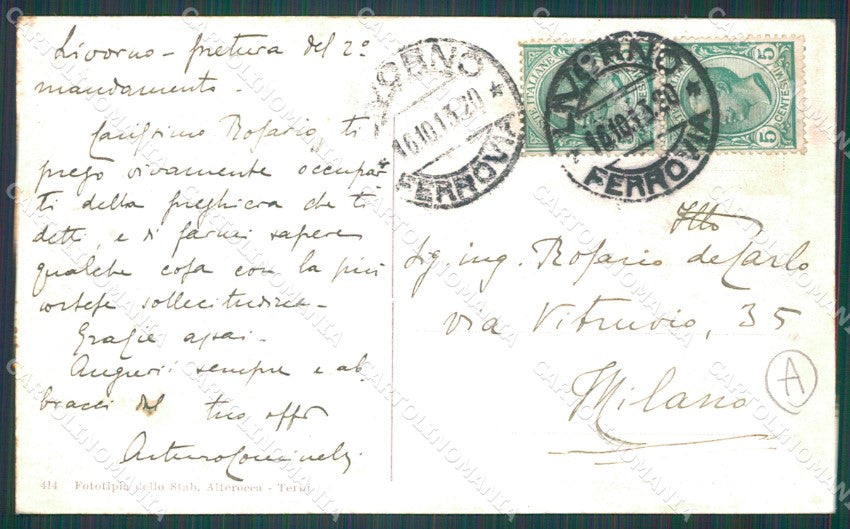 Livorno - pretura del 2º
mandamento.
Carissimo Rosario, ti
prego vivamente occupar
ti della preghiera che ti
detti, e di farmi sapere
qualche cosa con la più
cortese sollecitudine.
Grazie assai.
Auguri sempre e ab
bracci dal tuo affº
Arturo
414 Fototipia dello Stab. Alterocca - Terni
LIVORNO
16.10.13.20
FERROVIA
LIVORNO
16.10.13.20
FERROVIA
POSTE ITALIANE
CENTESIMI 5
5
Illº
Sig. ing. Rosario de Carlo
via Vitruvio, 35
Milano
A
CARTOLINOMANIA